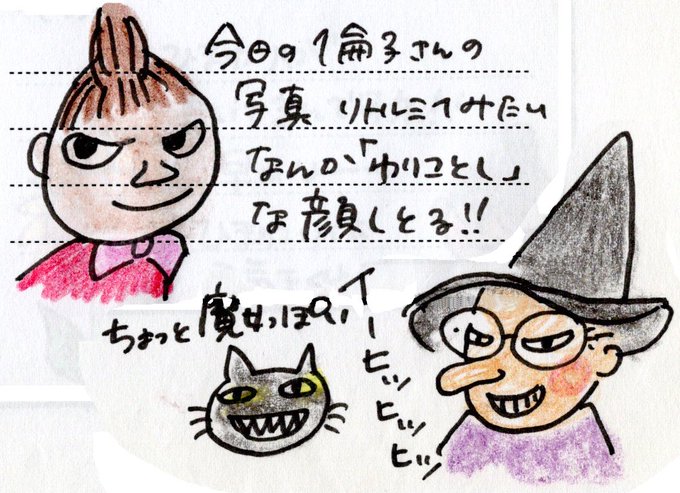 今日の倫子さんの
写真 リトルミイみたい
なんか「わりことし」
な顔しとる!!
ちょっと魔女っぽい
イーヒッヒッヒッ